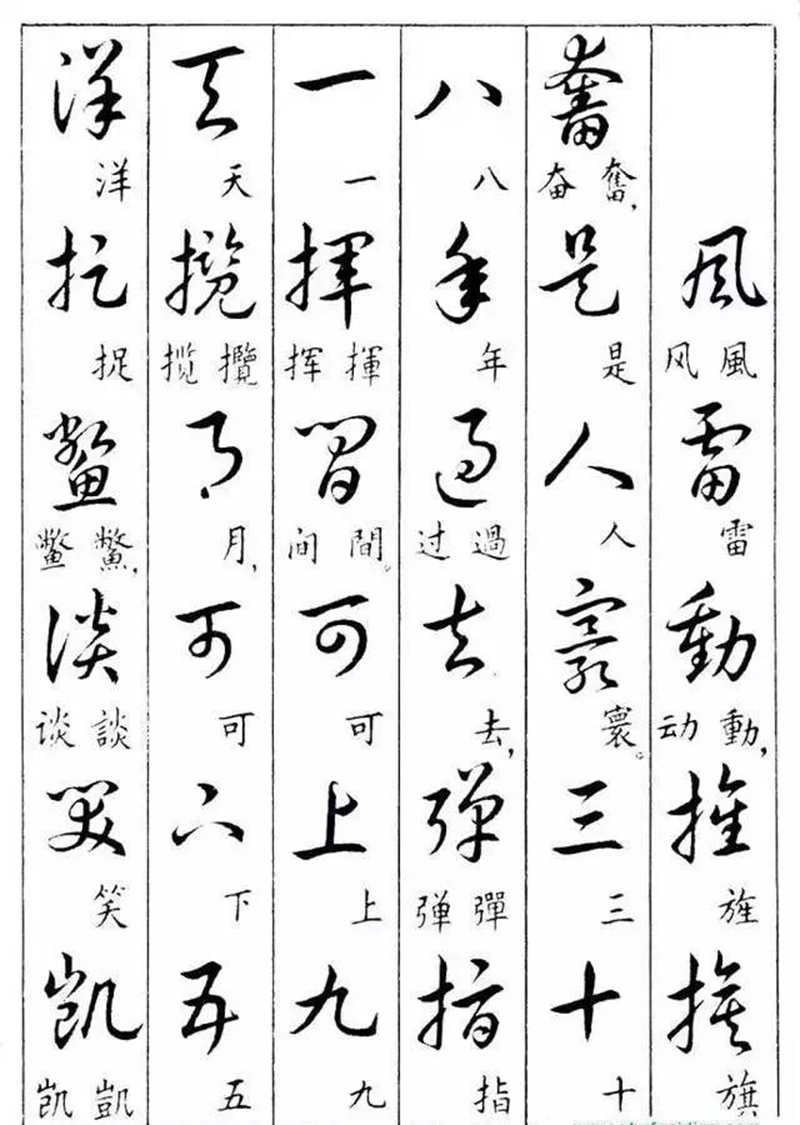 風 風 风 雷 雷 動 動, 动 旌 旌 旗 旗
奮 奮, 奋 是 是 人 人 寰 寰。 三 三 十 十
八 八 年 年 過 過 过 去 去, 彈 彈 弹 指 指
一 一 揮 揮 挥 間 間。 间 可 可 上 上 九 九
天 天 攬 攬 揽 月 月, 可 可 下 下 五 五
洋 洋 捉 捉 鱉 鱉, 鳖 談 談 谈 笑 笑 凱 凱 凯